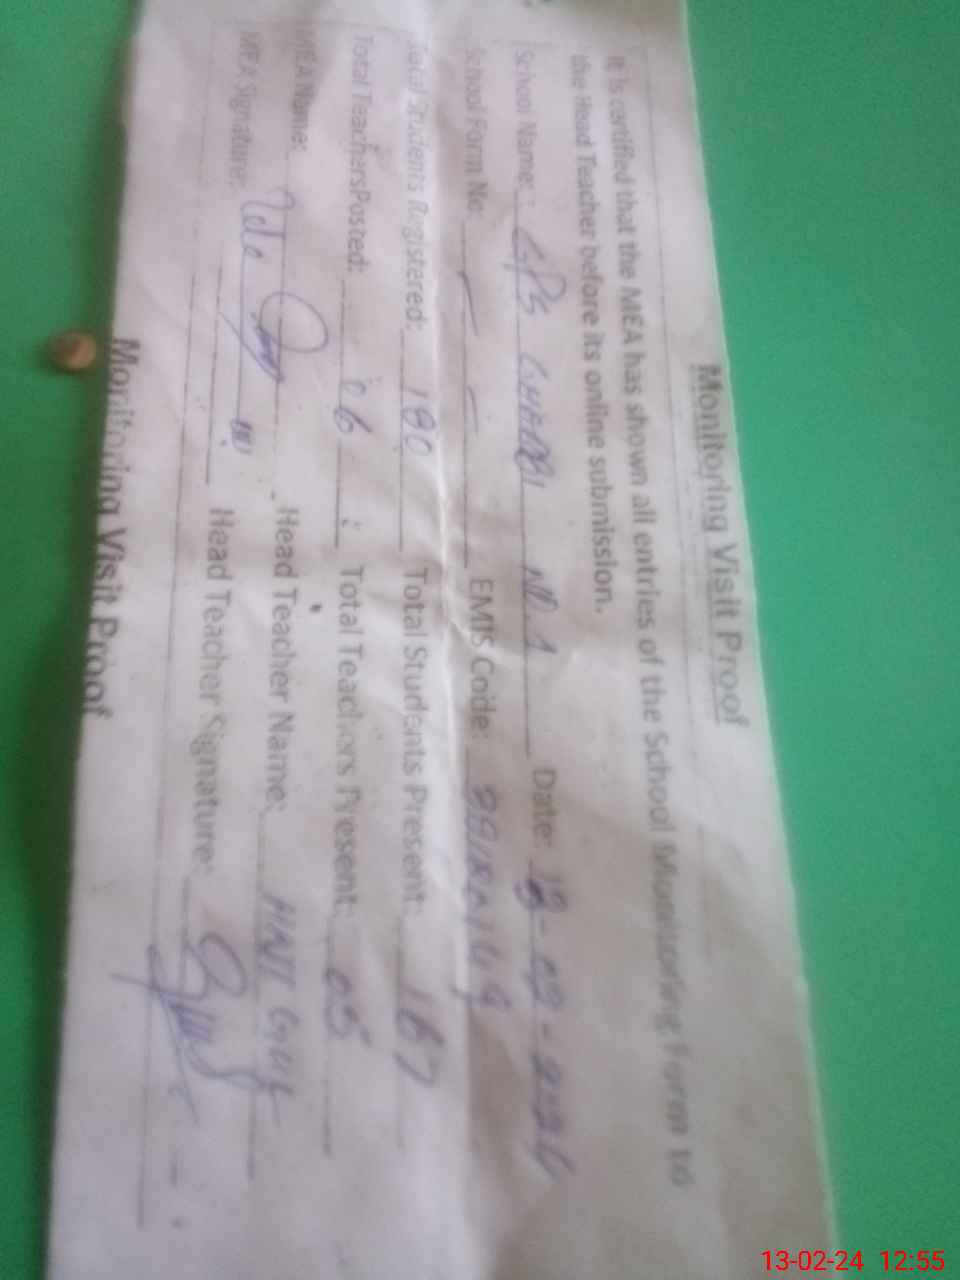 Monitoring Visit Proof
It is certified that the MEA has shown all entries of the School Monitoring Form to
the Head Teacher before its online submission.
School Name: GPS GHARIBI NO. 1 Date: 13-02-2024
School Form No: EMIS Code:
Total Students Registered: 190 Total Students Present: 167
Total Teachers Posted: 06 Total Teachers Present: 05
MEA Name: Head Teacher Name: HAJI GUL
MEA Signature: Head Teacher Signature:
Monitoring Visit Proof
13-02-24 12:55